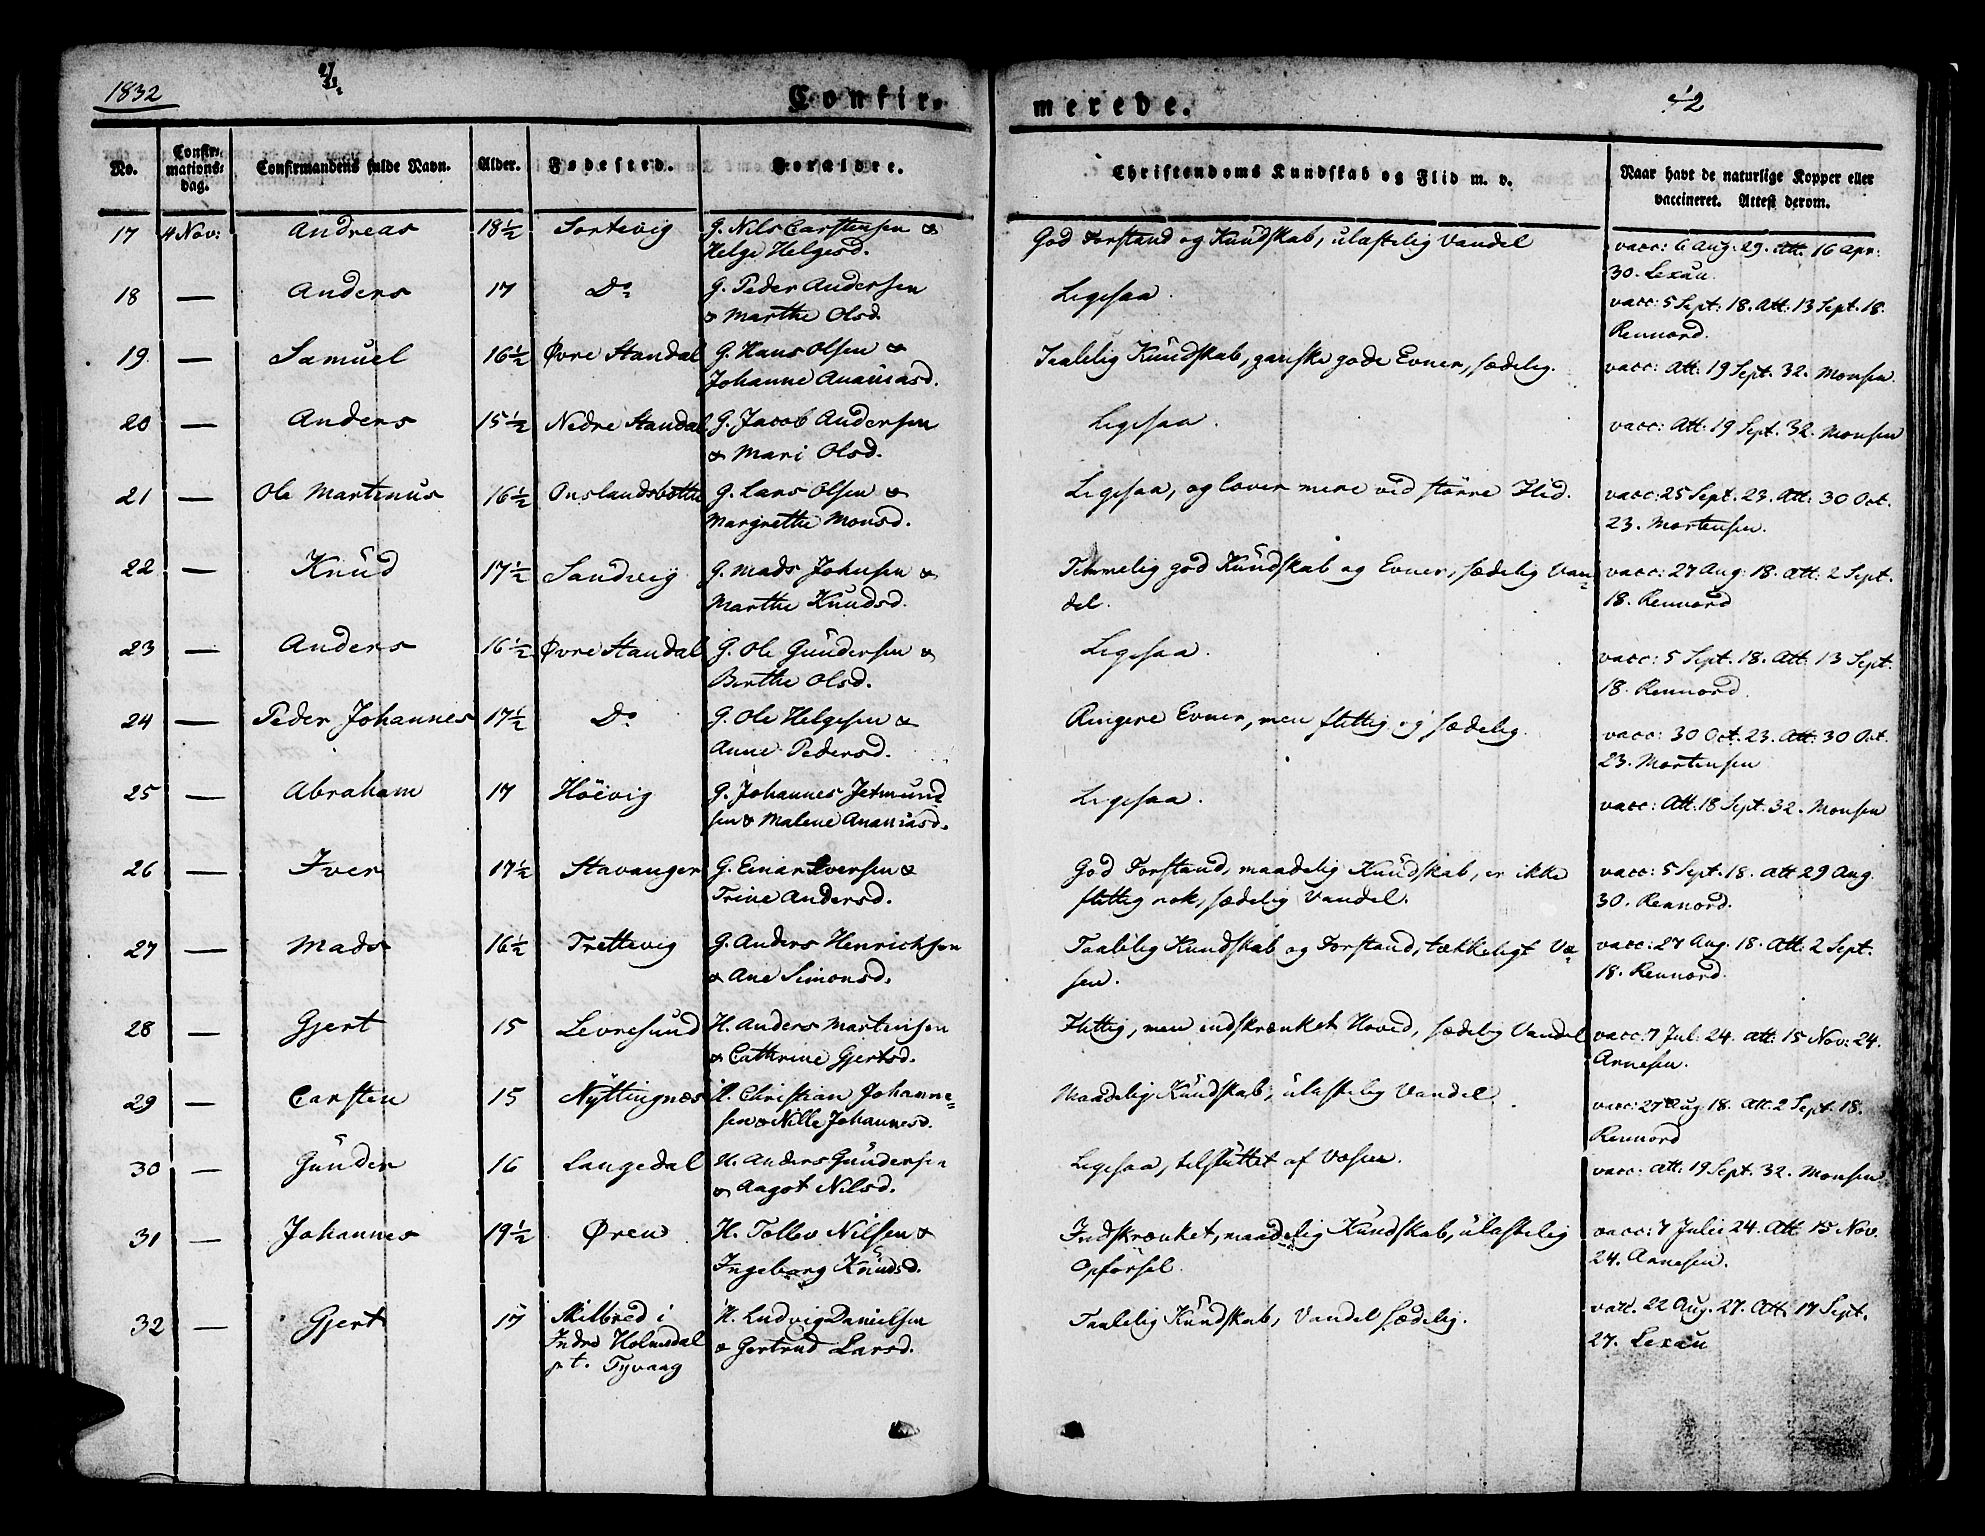 1832
Confir-
merede.
42
No.
Confir-
mations-
dag.
Confirmandens fulde Navn.
Alder.
Fødested.
Forældre.
Christendoms Kundskab og Flid m. v.
Naar havt de naturlige Kopper eller
vaccineret. Attest derom.
17 4 Nov: Andreas 18½ Sortevig G. Nils Carstensen &
Helge Helgesd.
God Forstand og Kundskab, ulastelig Vandel
vacc: 6 Aug. 29. Att. 16 Apr.
30. Lexau.
18 — Anders 17 Do G. Peder Andersen
& Marthe Olsd.
Ligesaa.
vacc: 5 Sept: 18. Att: 13 Sept. 18.
Rennord.
19. — Samuel 16½ Øvre Standal G. Hans Olsen &
Johanne Ananiasd.
Taalelig Kundskab, ganske gode Evner, sædelig.
vacc: Att: 19 Sept. 32. Monsen.
20 — Anders 15½ Nedre Standal G. Jacob Andersen
& Mari Olsd.
Ligesaa.
vacc: Att: 19 Sept. 32. Monsen
21 — Ole Martinus 16½ Onslandsbotten G. Lars Olsen &
Margrethe Monsd.
Ligesaa, og lover mere ved större Flid.
vacc: 25 Sept. 23. Att: 30 Oct.
23. Mortensen.
22 — Knud 17½ Sandvig G. Mads Johnsen &
Marthe Knudsd.
Temmelig god Kundskab og Evner, sædelig Van-
del.
vacc: 27 Aug: 18. Att: 2 Sept.
18. Rennord
23 — Anders 16½ Øvre Standal G. Ole Gundersen &
Berthe Olsd.
Ligesaa.
vacc: 5 Sept. 18. Att: 13 Sept.
18. Rennord.
24 — Peder Johannes 17½ Do G. Ole Helgesen &
Anne Pedersd.
Ringere Evner, men flittig og sædelig.
vacc: 30 Oct. 23. Att: 30 Oct.
23. Mortensen
25 — Abraham 17 Höivig G. Johannes Jetmund-
sen & Malene Ananiasd.
Ligesaa.
vacc: Att: 18 Sept. 32. Monsen
26 — Iver 17½ Stavanger G. Einar Iversen &
Trine Andersd.
God Forstand, maadelig Kundskab, er ikke
flittig nok, sædelig Vandel.
vacc: 5 Sept. 18. Att 29 Aug.
30. Rennord.
27 — Mads 16½ Trettevig G. Anders Henrichsen
& Ane Simonsd.
Taalelig Kundskab og Forstand, tækkeligt Væ-
sen.
vacc: 27 Aug. 18. Att: 2 Sept.
18. Rennord.
28 — Gjert 15 Levresund H. Anders Martinsen
& Cathrine Gjertsd.
Flittig, men indskrænket Hoved, sædelig Vandel
vacc: 7 Jul: 24. Att: 15 Nov: 24.
Arnesen.
29 — Carsten 15 Nyttingnæs H. Christian Johanne-
sen & Nille Johannesd.
Maadelig Kundskab, ulastelig Vandel.
vacc: 27 Aug 18. Att: 2 Sept. 18.
Rennord
30 — Gunder 16 Langedal H. Anders Gundersen
& Aagot Nilsd.
Ligesaa, tilsluttet af Væsen.
vacc: Att: 19 Sept. 32. Monsen
31 — Johannes 19½ Øren H. Tollev Nilsen &
Ingeborg Knudsd.
Indskrænket, maadelig Kundskab, ulastelig
Opførsel.
vacc: 7 Julii 24. Att 15 Nov.
24. Arnesen.
32 — Gjert 17 Skilbred i
Indre Holmedal
p. t. Tyvaag
H. Ludvig Danielsen
& Gertrud Larsd.
Taalelig Kundskab, Vandel sædelig.
vacc. 22 Aug. 27. Att. 17 Sept.
27. Lexau